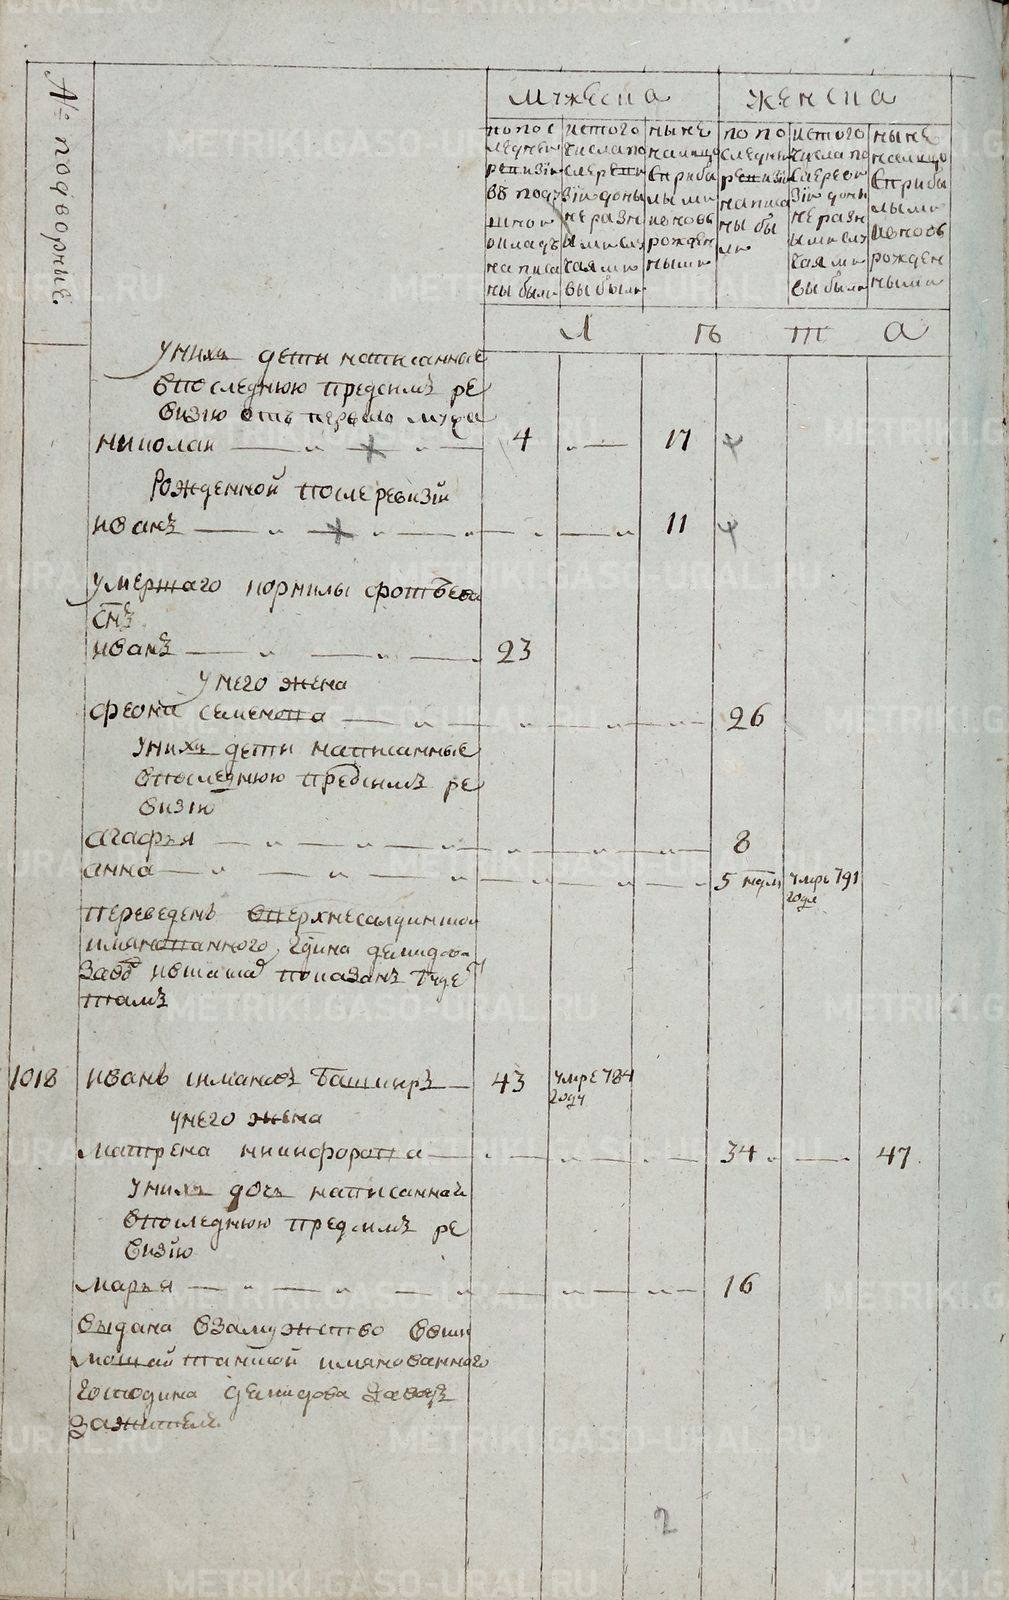 № подворние.
мужеска
женска
по пос
ледней
ревизiи
въ поду
шной
окладъ
написа
ны были
ис того
числа по
сле реви
зiи доны
не разн
ыми слу
чаями
выбыли
ныне
налицо
с прибы
лыми
и вновь
рожден
ными
по по
следней
ревизiи
написа
ны бы
ли
ис того
числа по
сле реви
зiи доны
не разн
ыми слу
чаями
выбыли
ныне
налицо
с прибы
лыми
и вновь
рожден
ными
Л ѣ т а
у них дети написанные
в последнюю пред симъ ре
визию отъ первого мужа
николаи 4 17
Рожденной после ревизiи
иванъ 11
умершаго кормилы фотѣева
снъ
иванъ 23
у него жена
феона семенова 26
у них дети написанные
в последнюю пред симъ ре
визию
агафья 8
анна 5 недл умре 791
года
переведенъ в верхнесалдинской
имянованного гдина демидова
завод и тамо показанъ будетъ
тамъ
1018 иванъ башкиръ 43 умре 784
году
у него жена
матрена никифорова 34 47
у них дочь написанная
в последнюю пред симъ ре
визiю
марья 16
выдана в замужство в
имянованного
господина демидова заводъ
за жителя
2
METRIKI.GASO-URAL.RU